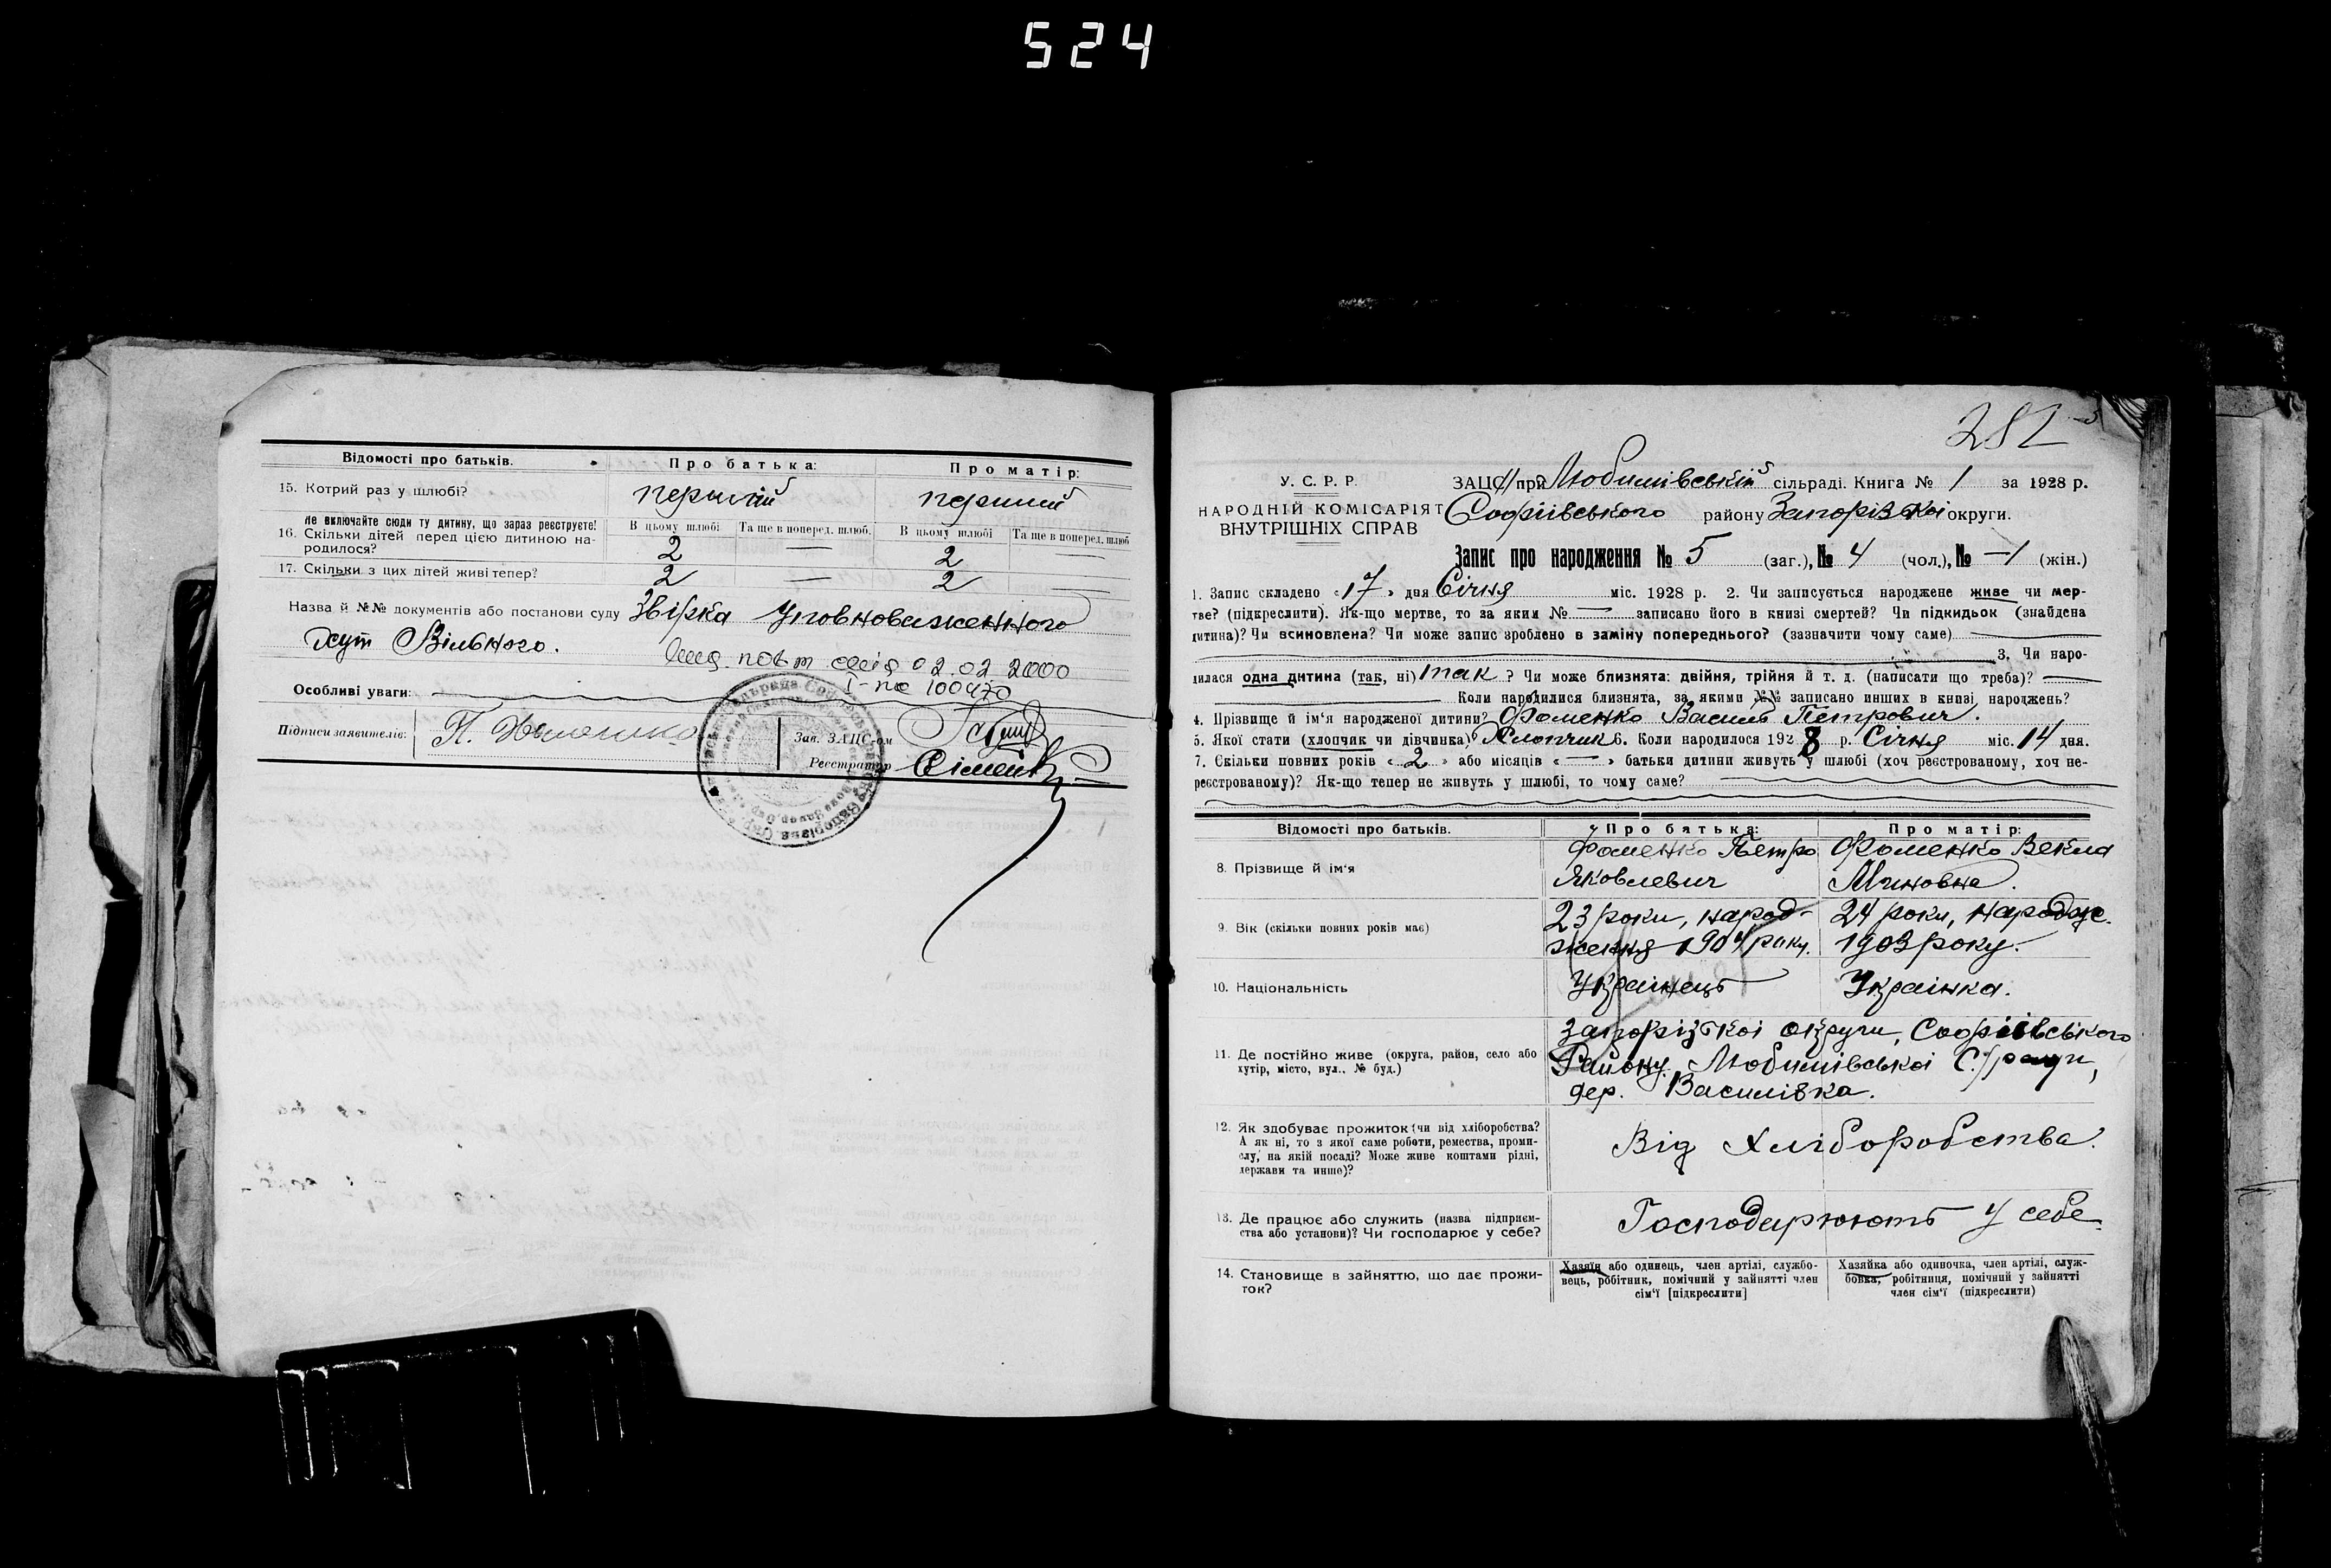 524
Відомості про батьків.
Про батька:
Про матір:
15. Котрий раз у шлюбі?
перший
перший
Не включайте сюди ту дитину, що зараз реєструєте!
В цьому шлюбі
Та ще в поперед. шлюб.
В цьому шлюбі
Та ще в поперед. шлюб
16. Скільки дітей перед цією дитиною на-
родилося?
2
—
2
17. Скільки з цих дітей живі тепер?
2
—
2
Назва й №№ документів або постанови суду Звірка Уповноваженного
хут Вільного.
повт 02.02 2000
100470
Особливі уваги:
Підписи заявителів:
П.
Зав. ЗАЦС-ом
Реєстратор
281
У. С. Р. Р.
НАРОДНІЙ КОМІСАРІЯТ
ВНУТРІШНІХ СПРАВ
ЗАЦС при Любимівській сільраді. Книга № 1 за 1928 р.
Софіївського району Запорізькоі округи.
Запис про народження № 5 (заг.), № 4 (чол.), № —1 (жін.)
1. Запис складено «17» дня Січня міс. 1928 р. 2. Чи записується народжене живе чи мер-
тве? (підкреслити). Як-що мертве, то за яким № — записано його в книзі смертей? Чи підкидьок (знайдена
дитина)? Чи всиновлена? Чи може запис зроблено в заміну попереднього? (зазначити чому саме)
3. Чи наро-
дилася одна дитина (так, ні) так ? Чи може близнята: двійня, трійня й т. д. (написати що треба)? —
Коли народилися близнята, за якими №№ записано инших в книзі народжень?
4. Прізвище й ім'я народженої дитини? Фоменко Василь Петрович.
5. Якої стати (хлопчик чи дівчинка)? Хлопчик 6. Коли народилося 1928 р. Січня міс. 14 дня.
7. Скільки повних років «2» або місяців «—» батьки дитини живуть у шлюбі (хоч реєстрованому, хоч не-
реєстрованому)? Як-що тепер не живуть у шлюбі, то чому саме?
Відомості про батьків.
Про батька:
Про матір:
8. Прізвище й ім'я
Фоменко Петро
Яковлевич
Фоменко Векла
9. Вік (скільки повних років має)
23 роки, народ-
ження 1904 року.
24 роки, народже.
1903 року.
10. Національність
Украінець
Украінка.
11. Де постійно живе (округа, район, село або
хутір, місто, вул., № буд.)
Запорізькоі округи, Софіівського
Району, Любимівськоі С/ради,
дер. Василівка.
12. Як здобуває прожиток (чи від хліборобства?
А як ні, то з якої саме роботи, ремества, проми-
слу, на якій посаді? Може живе коштами рідні,
держави та инше)?
Від Хліборобства.
13. Де працює або служить (назва підприєм-
ства або установи)? Чи господарює у себе?
Господарюють У себе
14. Становище в зайняттю, що дає прожи-
ток?
Хазяїн або одинець, член артілі, службо-
вець, робітник, помічний у зайнятті член
сім'ї [підкреслити]
Хазяйка або одиночка, член артілі, служ-
бовка, робітниця, помічний у зайнятті
член сім'ї (підкреслити)